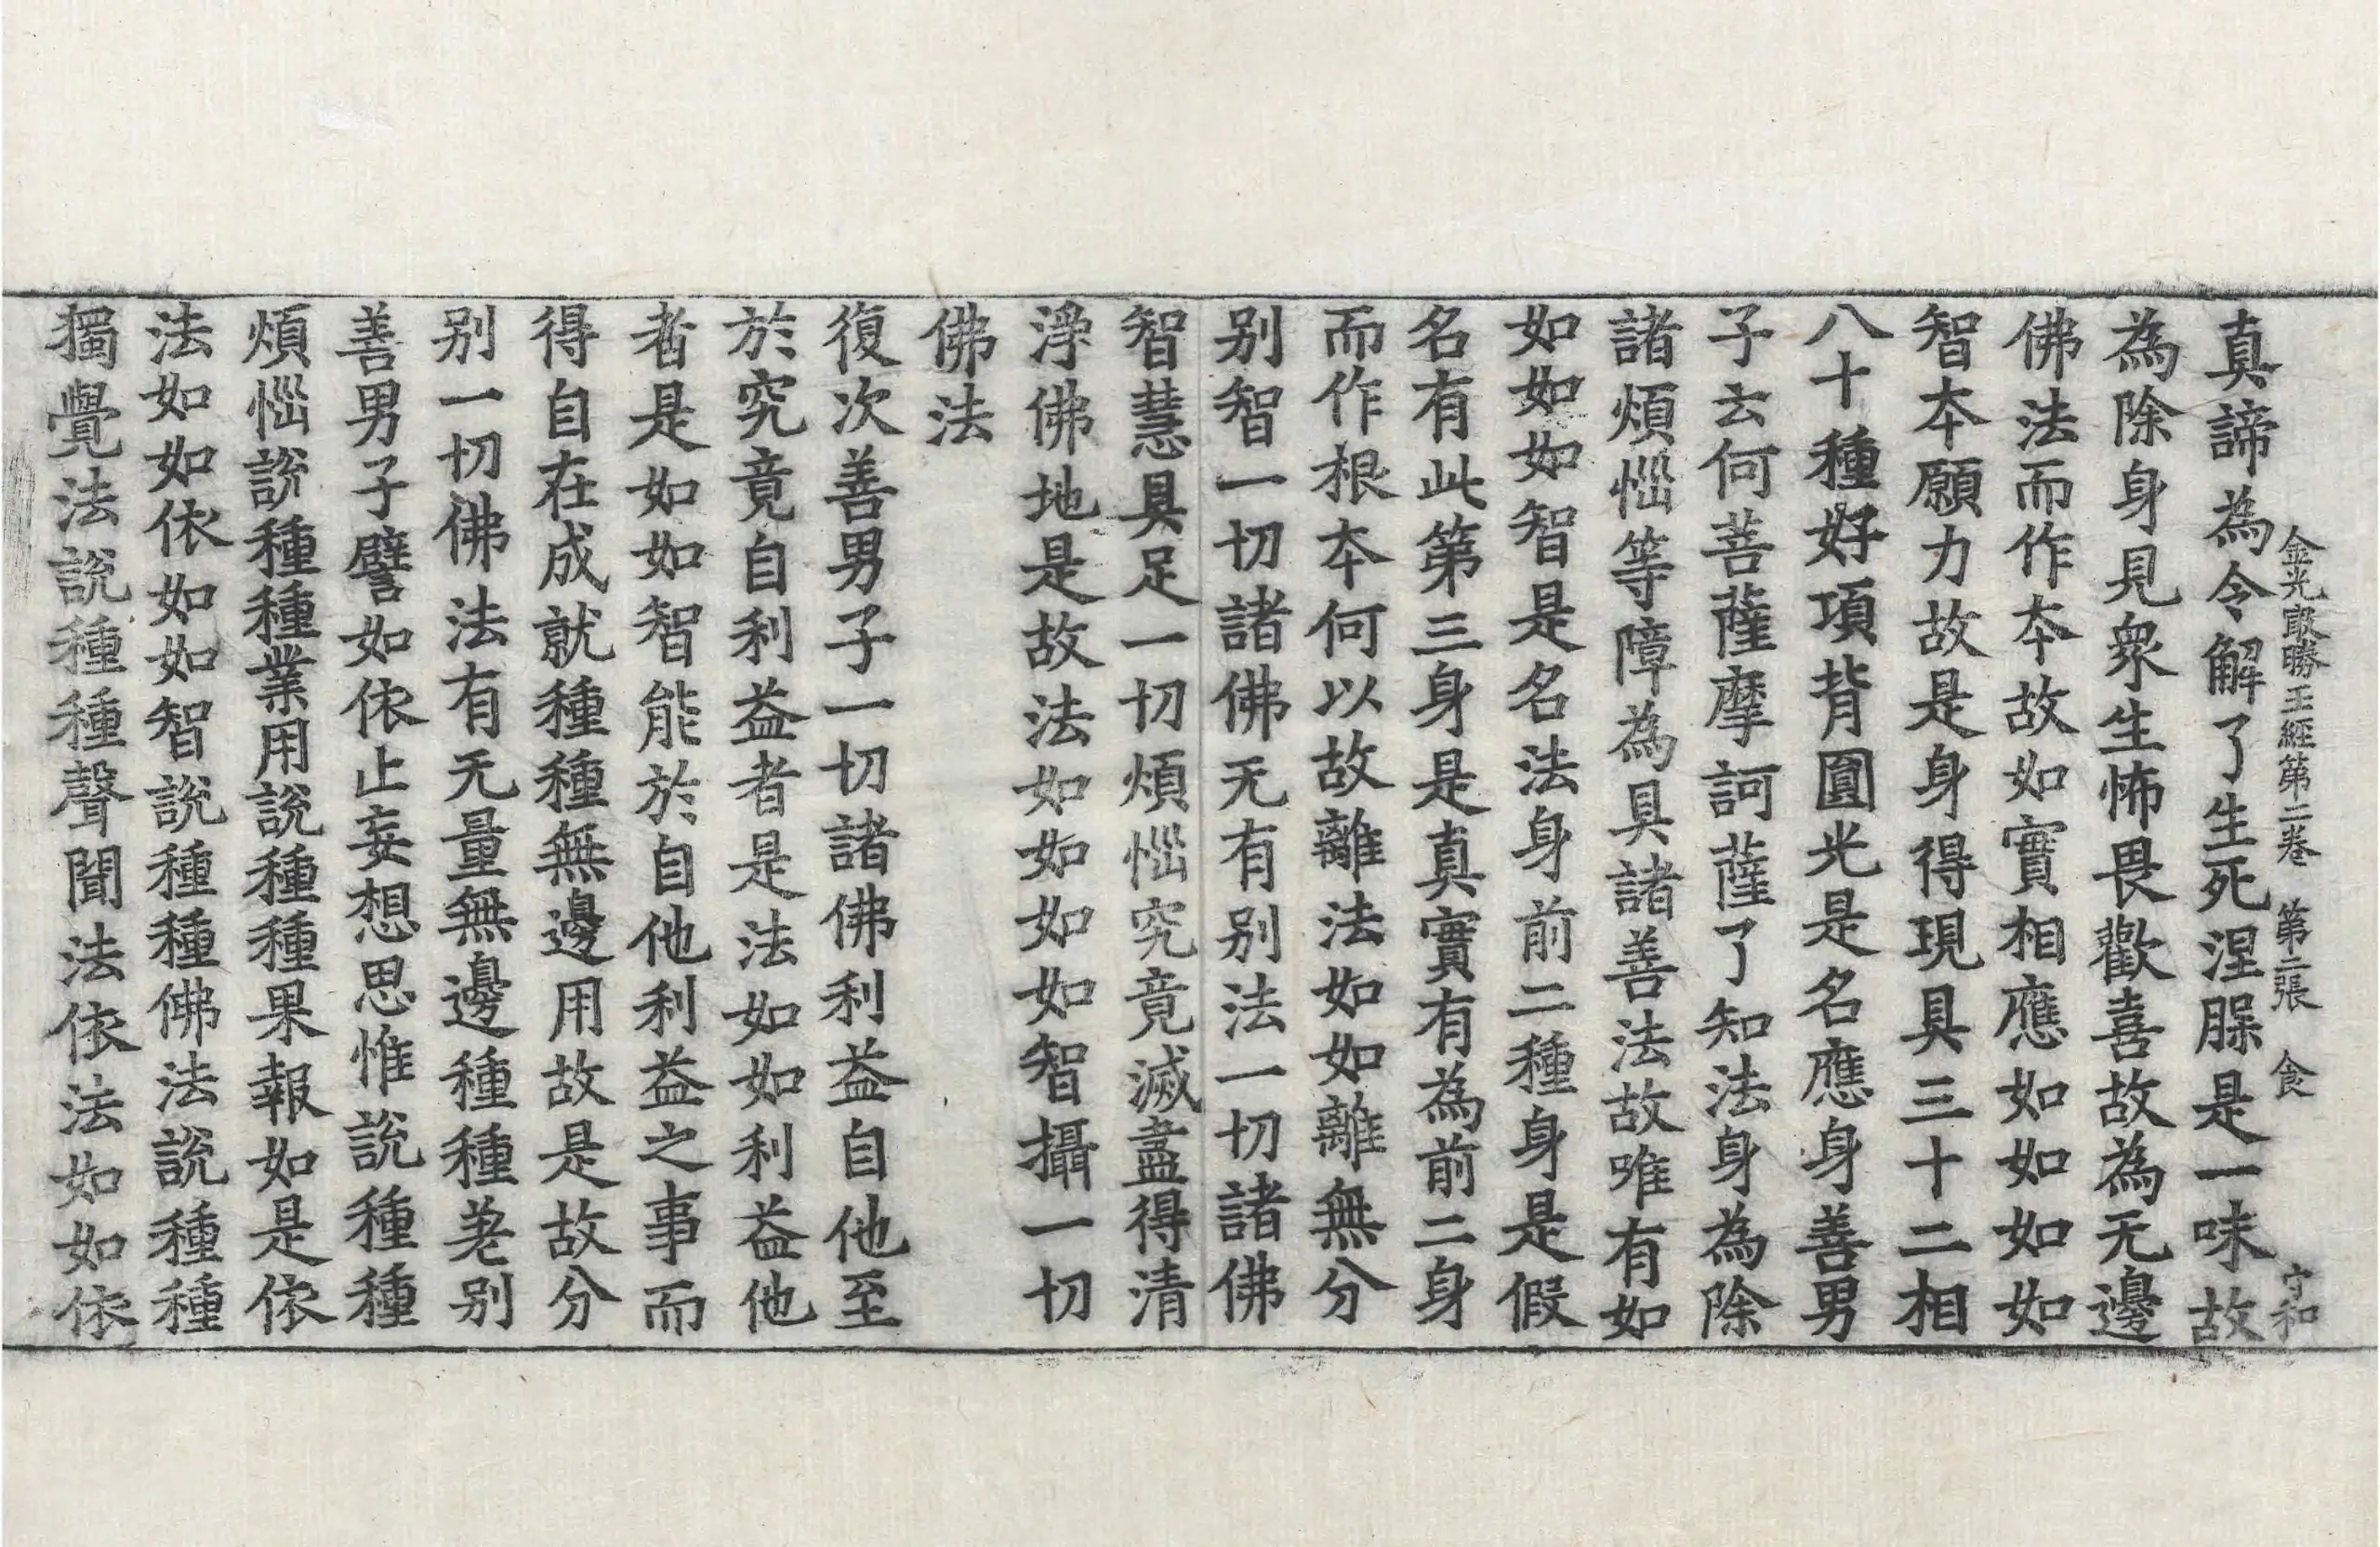 金光㝡勝王經第二卷 第二張 食 守和
真諦為令解了生死涅脲是一味故
為除身見衆生怖畏歡喜故為无邊
佛法而作夲故如實相應如如如如
智夲願力故是身得現具三十二相
八十種好項背圓光是名應身善男
子云何菩薩摩訶薩了知法身為除
諸煩惱等障為具諸善法故唯有如
如如如智是名法身前二種身是假
名有此第三身是真實有為前二身
而作根夲何以故離法如如離無分
别智一切諸佛无有别法一切諸佛
智慧具足一切煩惱究竟滅盡得清
淨佛地是故法如如如如智攝一切
佛法
復次善男子一切諸佛利益自他至
於究竟自利益者是法如如利益他
者是如如智能於自他利益之事而
得自在成就種種無邊用故是故分
别一切佛法有无量無邊種種差别
善男子譬如依止妄想思惟說種種
煩惱說種種業用說種種果報如是依
法如如依如如智說種種佛法說種種
獨覺法說種種聲聞法依法如如依